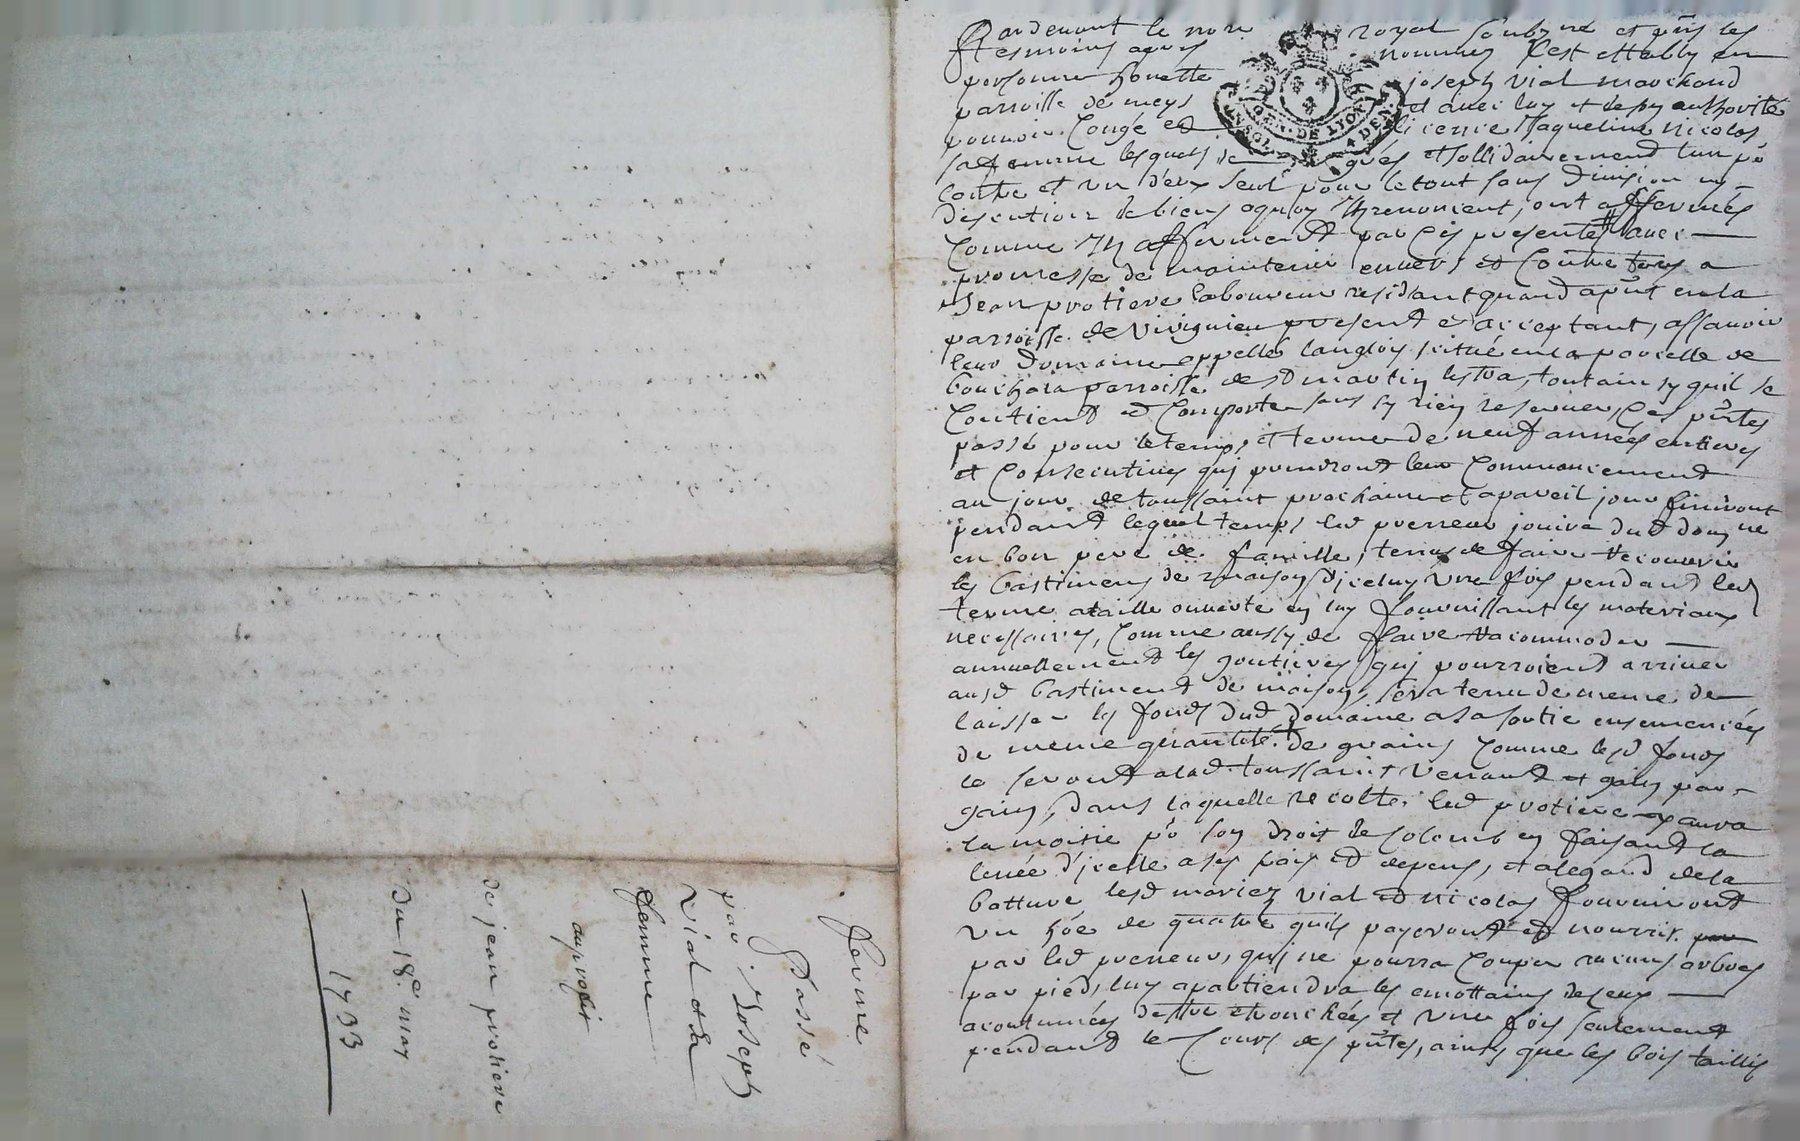 Pardevant le no.re royal soubz.né et p̃ns les
tesmoins apres nommez s'est estably en
personne honeste joseph vial marchand
parroisse de meys et avec luy et de luy authorité
pouvoir congé et licence Jaqueline nicolas
sa femme lesquels sollidairement l'un p.r
l'autre et un d'eux seul pour le tout sans division ny
descution le bien aquoy Ils renoncent, ont affermés
comme Ils afferment par ces presentes avec
promesse de maintenir envers et contre tous a
Jean protiere laboureur residant quand a p̃nt en la
parroisse de Virignieu present et acceptant, assavoir
leur domaine appellés langlois scitué en la parcelle de
bouchala parroisse de s.t martin lestra, tout ainsy quil se
contient et comporte sans sy rien reserver, ces p̃ntes
passé pour le temps et terme de neuf années entieres
et consecutives qui prendront leur commancement
au jour de toussaint prochaine et a pareil jour finiront
pendant lequel temps led preneur jouira dud dom.ne
en bon pere de famille, tenu de faire recouvrir
les bastimens de maison d'iceluy une fois pendant led
terme a taille ouverte en luy fournissant les materiaux
necessaires, comme aussy de faire racommoder
annuellement les goutieres qui pourroient arriver
ausd bastiment de maison, sera tenu de meme de
laisser les fonds dud domaine a sa sortie ensemencées
de meme quantité de grains comme lesd fonds
le seront a lad toussaint venant et gain par
gain, dans laquelle recolte led protiere aura
la moitie p.r son droit de colonis en faisant la
levée d'icelle a ses fais et depens, et a legard de la
batture lesd mariez vial et nicolas fourniront
un hõe de quatre quils payeront et nourris
par led preneur, qui ne pourra couper aucuns arbres
par pied, luy apartiendra les emottains de ceux
acoutumés detre etronchés et une fois seulement
pendant le cours des p̃ntes, ainsy que les bois taillis
GEN. DE LYON
ferme
Passé
par Joseph
Vial et sa
femme
au profit
de jean protiere
Du 18.e may
1733